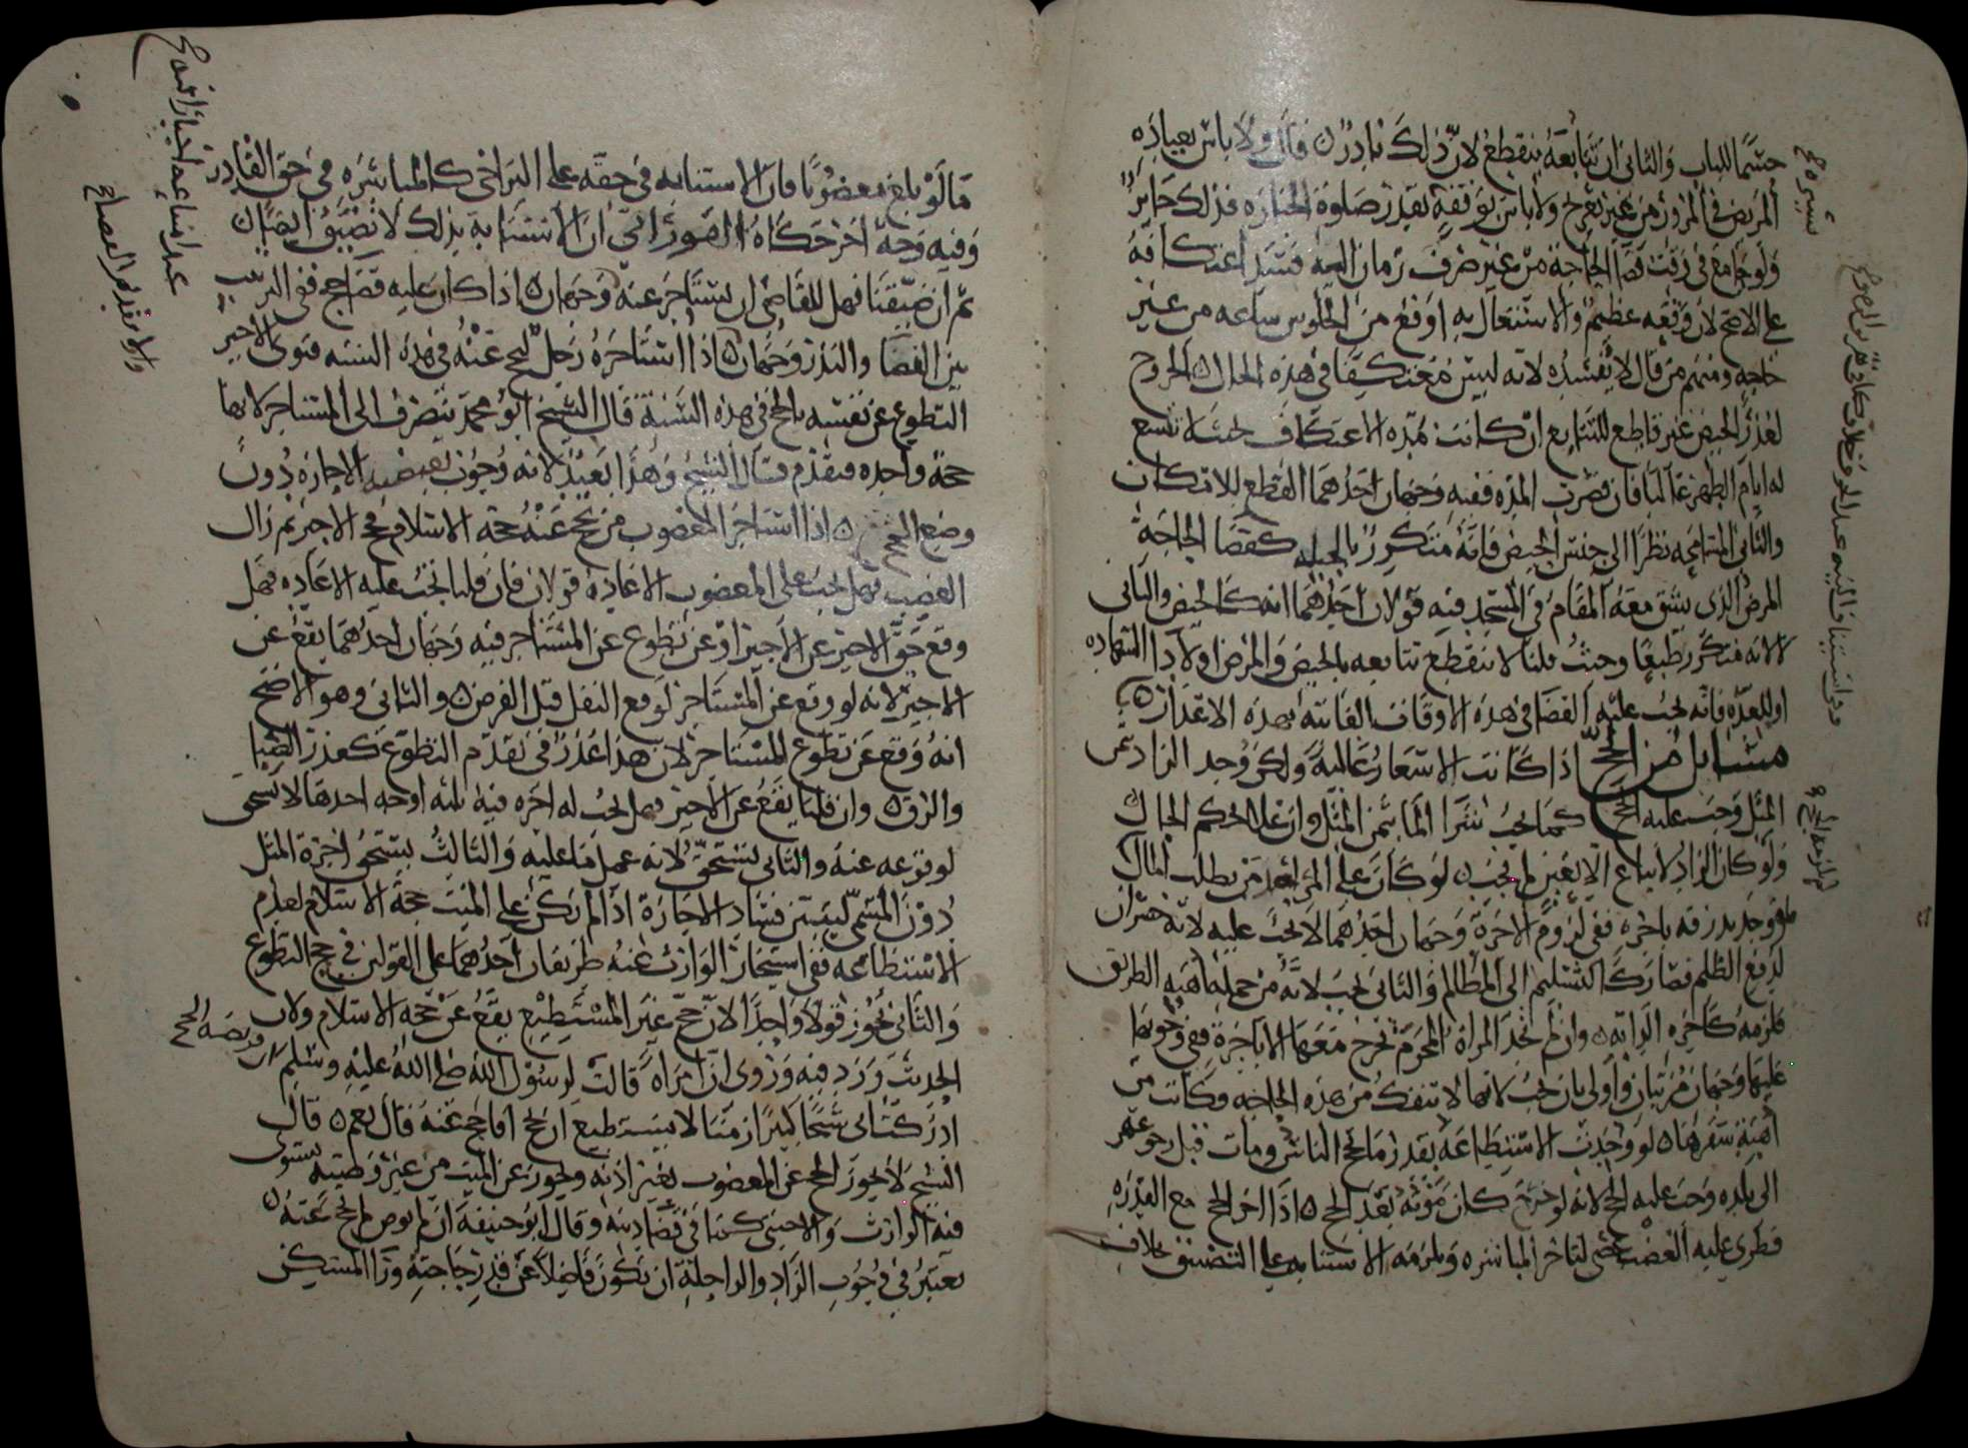 حسما للباب والثانى ان تتابعه ينقطع لان ذلك نادر قال ولا باس بعيادة
المريض فى المرور من غير تعريج ولا باس بوقفة بقدر صلوة الجنازة فذلك جايز
ولو جامع فى وقت قضا الحاجة من غير صرف زمان اليه فسد اعتكافه
على الاصح لان وقعه عظيم والاشتغال به اوقع من الجلوس ساعه من غير
حاجه ومنهم من قال لا يفسده لانه ليس معتكفا فى هذه الحال الخروج
لعذر الحيض غير قاطع للتتابع ان كانت مدة الاعتكاف بحيث لا تسع
له ايام الطهر غالبا فان قصرت المدة ففيه وجهان احدهما القطع للامكان
والثانى المسامحه نظرا الى جنس الحيض فانه متكرر بالجبله كقضا الحاجة
المرض الذى يشق معه المقام فى المسجد فيه قولان احدهما انه كالحيض والثانى
لا لانه متكرر طبيعا وحيث قلنا لا ينقطع تتابعه بالحيض والمرض او لادا الشهاده
او للعدة فانه يجب عليه القضا فى هذه الاوقات الفايته بهذه الاعذار
مسايل من الحج اذا كانت الاسعار غالية ولكن وجد الزاد بثمن
المثل وجب عليه الحج كما يجب شرا الما بثمن المثل وان غلا بحكم الحال
ولو كان الزاد لا يباع الا بغبن لم يجب لو كان على المراصد من يطلب المال
فوجد بدرقه باجرة ففى لزوم الاجرة وجهان احدهما لا يجب عليه لانه خسران
لدفع الظلم فصار كالتسليم الى المظالم والثانى يجب لانه من جمله اهبه الطريق
فلزمه كاجره الدابه وان لم تجد المراة المحرم يخرج معها الا باجرة ففى وجوبها
عليها وجهان مرتبان واولى بان يجب لانها لا تنفك من هذه الحاجه وكانت من
اهبة سفرها لو وجدت الاستطاعه بقدر ما حج الناس ومات قبل رجوعهم
الى بلده وجب عليه الحج لانه لو خرج كان موته بعد الحج اذا اخر الحج مع القدره
فطرى عليه العضب عصى لتاخر المباشره ولزمه الاستنابه على التضييق بخلاف
ما لو بلغ معضوبا فان الاستنابه فى حقه على التراخى كالمباشره فى حق القادر
وفيه وجه اخر حكاه الصورانى ان الاستنابة بذلك لا تضيق ايضا
ثم ان ضيقنا فهل للقاضى ان يستاجر عنه وجهان اذا كان عليه قضا حج ففى الترتيب
بين القضا والنذر وجهان اذا استاجره رجل ليحج عنه فى هذه السنه فنوى الاجير
التطوع عن نفسه بالحج فى هذه السنة قال الشيخ ابو محمد ينصرف الى المستاجر لانها
حجة واحده فتقدم قال الشيخ وهذا بعيد لانه وجوب الاجاره دون
وضع الحج اذا استاجر المعضوب من يحج عنه حجة الاسلام فحج الاجير ثم زال
العضب فهل يجب على المعضوب الاعادة قولان فان قلنا يجب عليه الاعاده فهل
وقع حج الاجير عن الاجير او عن تطوع عن المستاجر فيه وجهان احدهما يقع عن
الاجير لانه لو وقع عن المستاجر لوقع النفل قبل الفرض والثانى وهو الاصح
انه وقع عن تطوع المستاجر لان هذا عذر فى تقدم التطوع كعذر الصبا
والرق وان قلنا يقع عن الاجير فهل يجب له اجره فيه ثلثه اوجه احدها لا يستحق
لوقوعه عنه والثانى يستحق لانه عمل ما عليه والثالث يستحق اجرة المثل
دون المسمى ليتبين فساد الاجارة اذا لم يكن على الميت حجة الاسلام لعدم
الاستطاعه ففى استيجار الوارث عنه طريقان احدهما على القولين فى حج التطوع
والثانى يجوز قولا واحدا لان حج غير المستطيع يقع عن حجه الاسلام ولان
الحديث ورد فيه وروى ان امراة قالت لرسول الله صلى الله عليه وسلم ان فريضة الحج
ادركت ابى شيخا كبيرا زمنا لا يستطيع ان يحج افاحج عنه قال نعم قال
الشيخ لا يجوز الحج عن المعضوب بغير اذنه ويجوز عن الميت من غير وصيته يستوى
فيه الوارث والاجنبى كما فى قضا دينه وقال ابو حنيفة ان لم يوص لم يحج عنه
يعتبر فى وجوب الزاد والراحلة ان يكون فاضلا عن قدر حاجته وذا المسكن